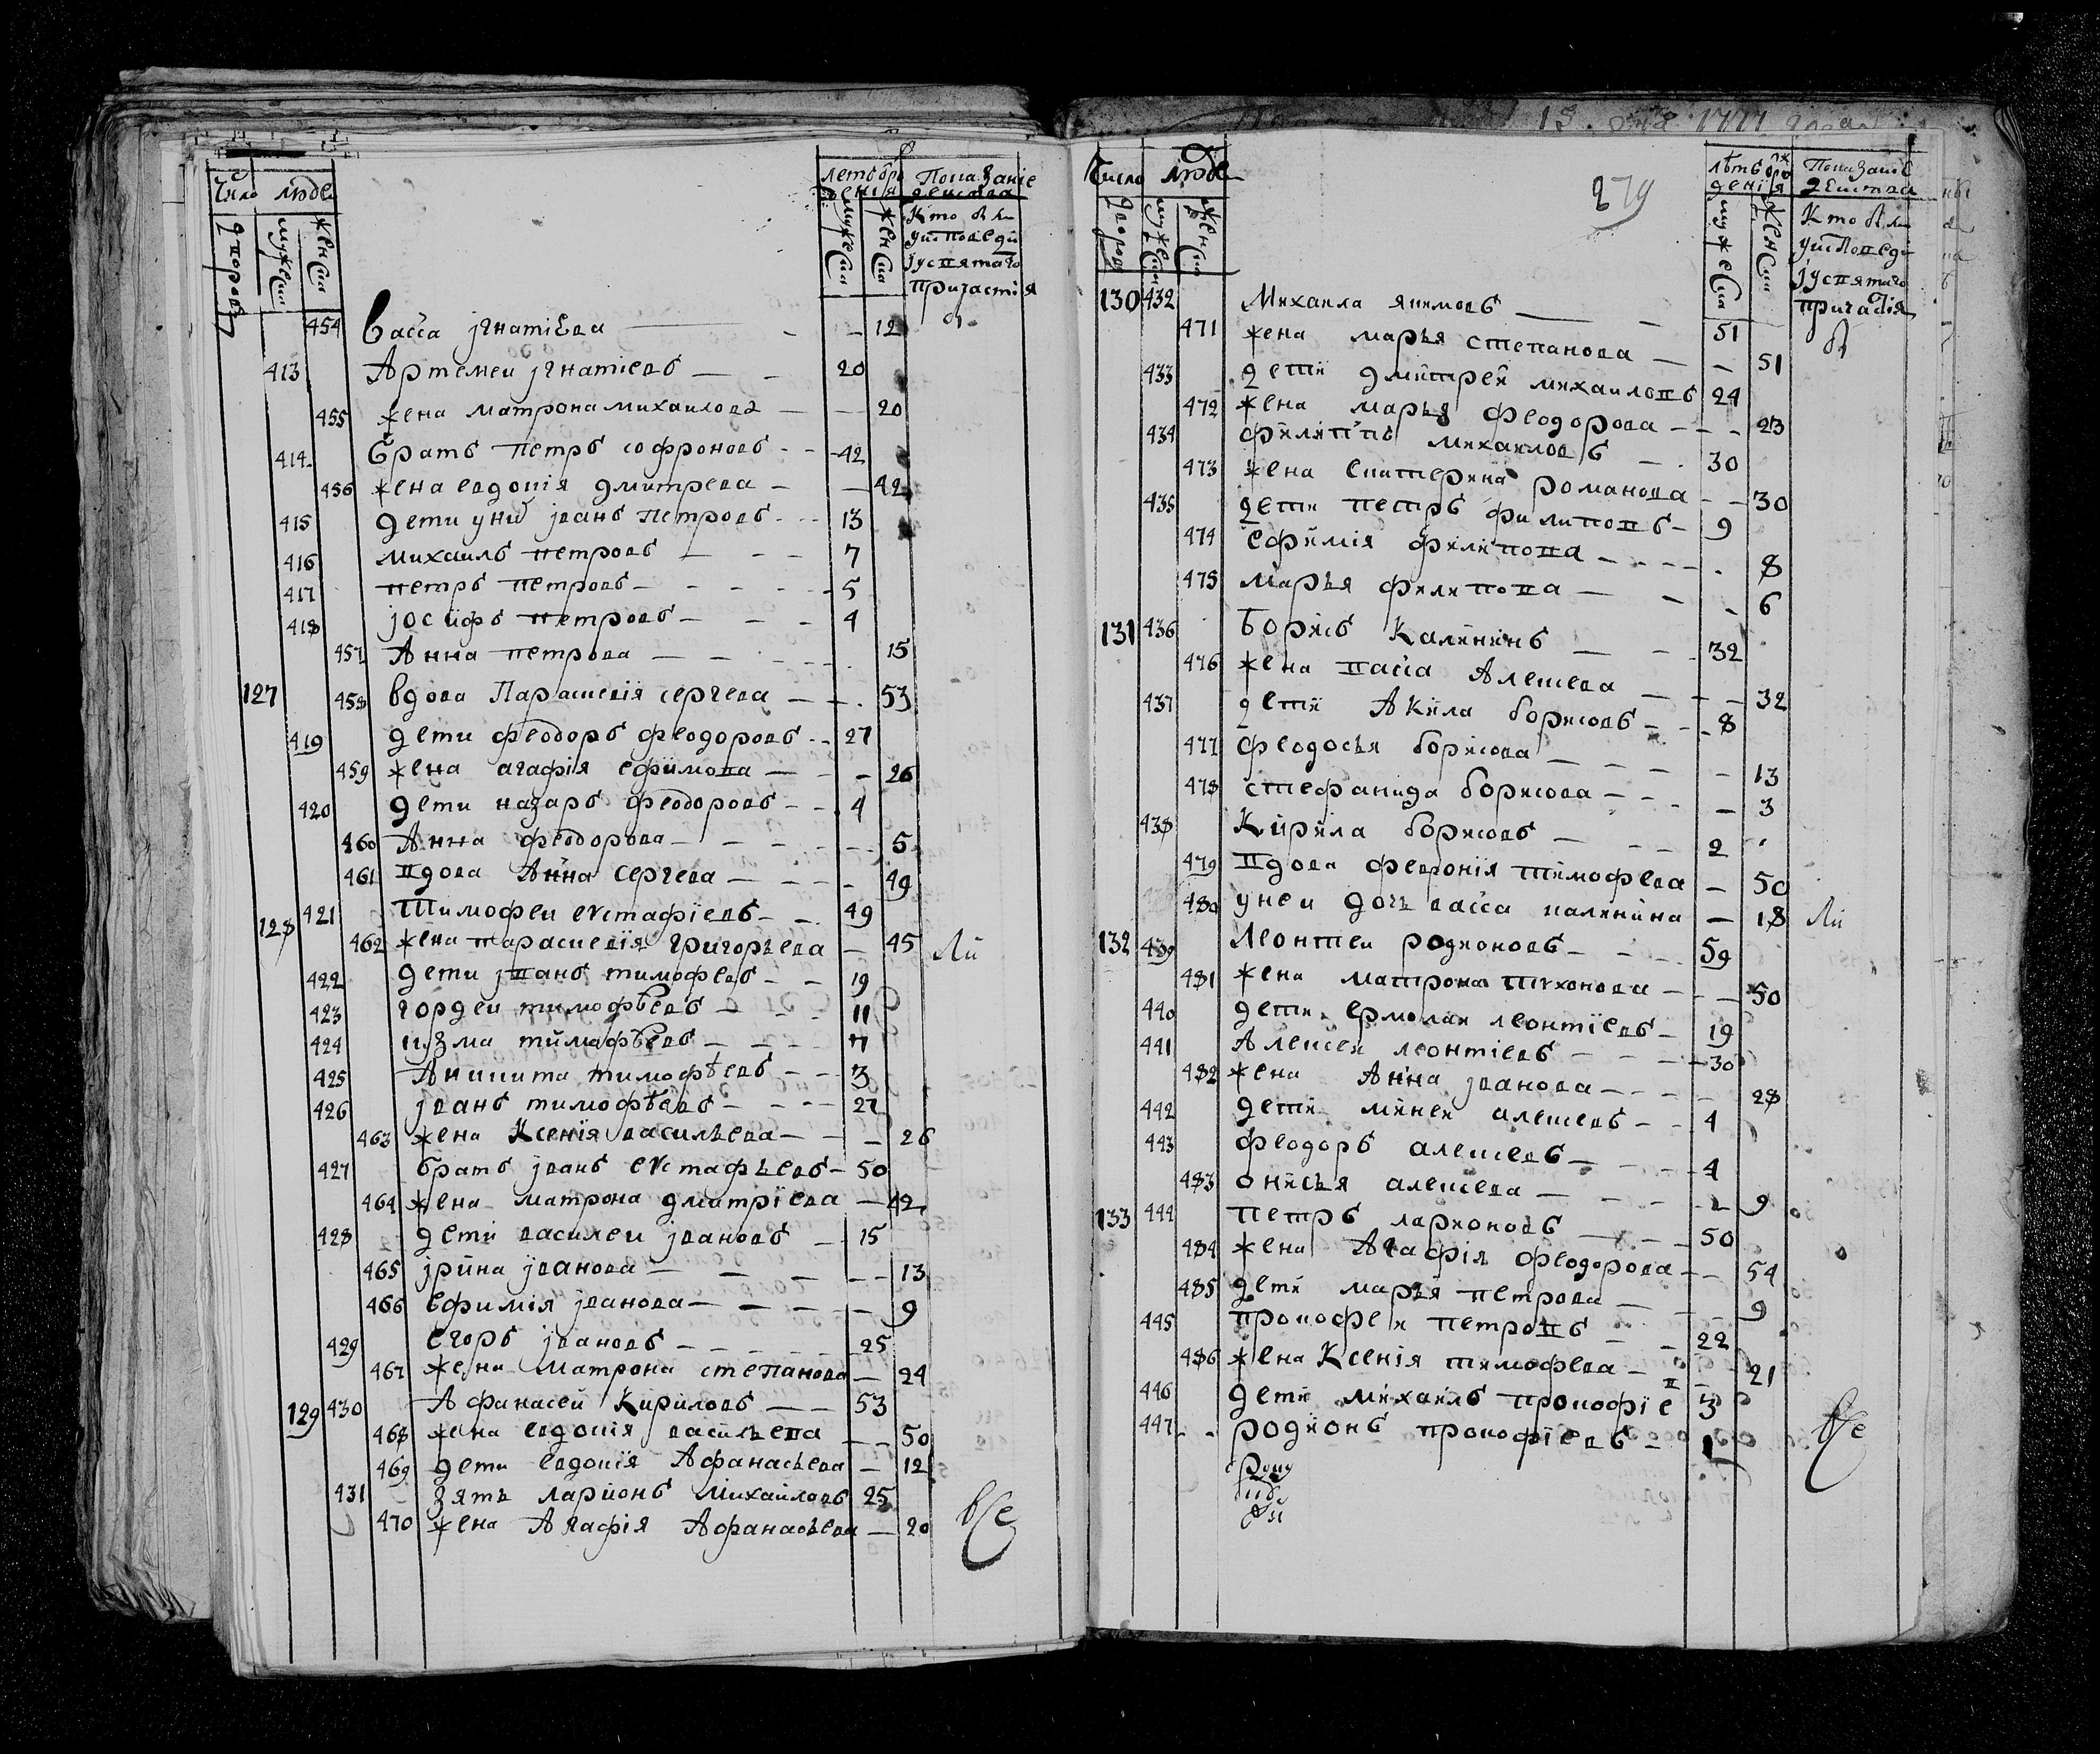 Число люде
дворовъ мужеска женска
летъ о рождения мужеска женска
Показание действа
Кто былъ
у исповеди
і у святаго
причастия
454 васса iгнатiева — 12 бы
413 Артемеи iгнатiевъ — 20
455 жена матрона михаилова — 20
414 братъ петръ софроновъ — 42
456 жена евдокiя дмитрева — 42
415 дети у нихъ iванъ петровъ — 13
416 михаилъ петровъ — 7
417 петръ петровъ — 5
418 iосифъ петровъ — 4
457 Анна петрова — 15
127 458 вдова Параскевiя сергева — 53
419 дети феодоръ феодоровъ — 27
459 жена агафiя ефимова — 26
420 дети назаръ феодоровъ — 4
460 Анна феодорова — 5
461 вдова Анна сергева — 49
128 421 Тимофеи евстафiевъ — 49
462 жена параскевiя григорьева — 45 ли
422 дети iванъ тимофевъ — 19
423 гордеи тимофѣевъ — 11
424 кузма тимофѣевъ — 7
425 Аникита тимофѣевъ — 3
426 iванъ тимофѣевъ — 27
463 жена Ксенiя васильева — 26
427 братъ iванъ евстафьевъ — 50
464 жена матрона дматрiева — 42
428 дети василеи iвановъ — 15
465 iрина iванова — 13
466 Ефимiя iванова — 9
429 Егоръ iвановъ — 25
467 жена матрона степанова — 24
129 430 Афанасеи Кириловъ — 53
468 жена евдокiя васильева — 50
469 дети евдокiя Афанасьева — 12
431 зять ларионъ михаиловъ 25
470 жена Агафiя Афанасьева — 20 все
Число люде
дворовъ мужеска женска
279
лѣтъ о рождения мужеска женска
Показание действа
Кто былъ
у исповеди
і у святаго
причастiя
130 432 Михаила якимовъ — 51 бы
471 жена марья степанова — 51
433 дети дмитрей михаиловъ 24
472 жена марья феодорова — 23
434 филиппъ михаиловъ — 30
473 жена екатерина романова — 30
435 дети петръ филиповъ — 9
474 Ефимiя филипова — 8
475 марья филипова — 6
131 436 Борисъ Калининъ — 32
476 жена васса Алексева — 32
437 дети Акила борисовъ — 8
477 феодосья борисова — 13
478 стефанида борисова — 3
438 Кирила борисовъ — 2
479 вдова феврония тимофева — 50
480 у неи дочь васса калинина — 18 ли
132 439 Леонтеи родионовъ — 59
481 жена матрона тихонова — 50
440 дети ермолаи леонтiевъ — 19
441 Алексеи леонтiевъ — 30
482 жена Анна iванова — 28
442 дети минеи алексевъ — 4
443 феодоръ алексевъ — 4
483 онисья алексева — 9
133 444 Петръ ларионовъ — 50
484 жена Агафiя феодорова — 54
485 дети марья петрова — 9
445 прокофеи петровъ — 22
486 жена Ксенiя тимофева — 21
446 дети михаилъ прокофiев 3
447 родионъ прокофiевъ — 1 все